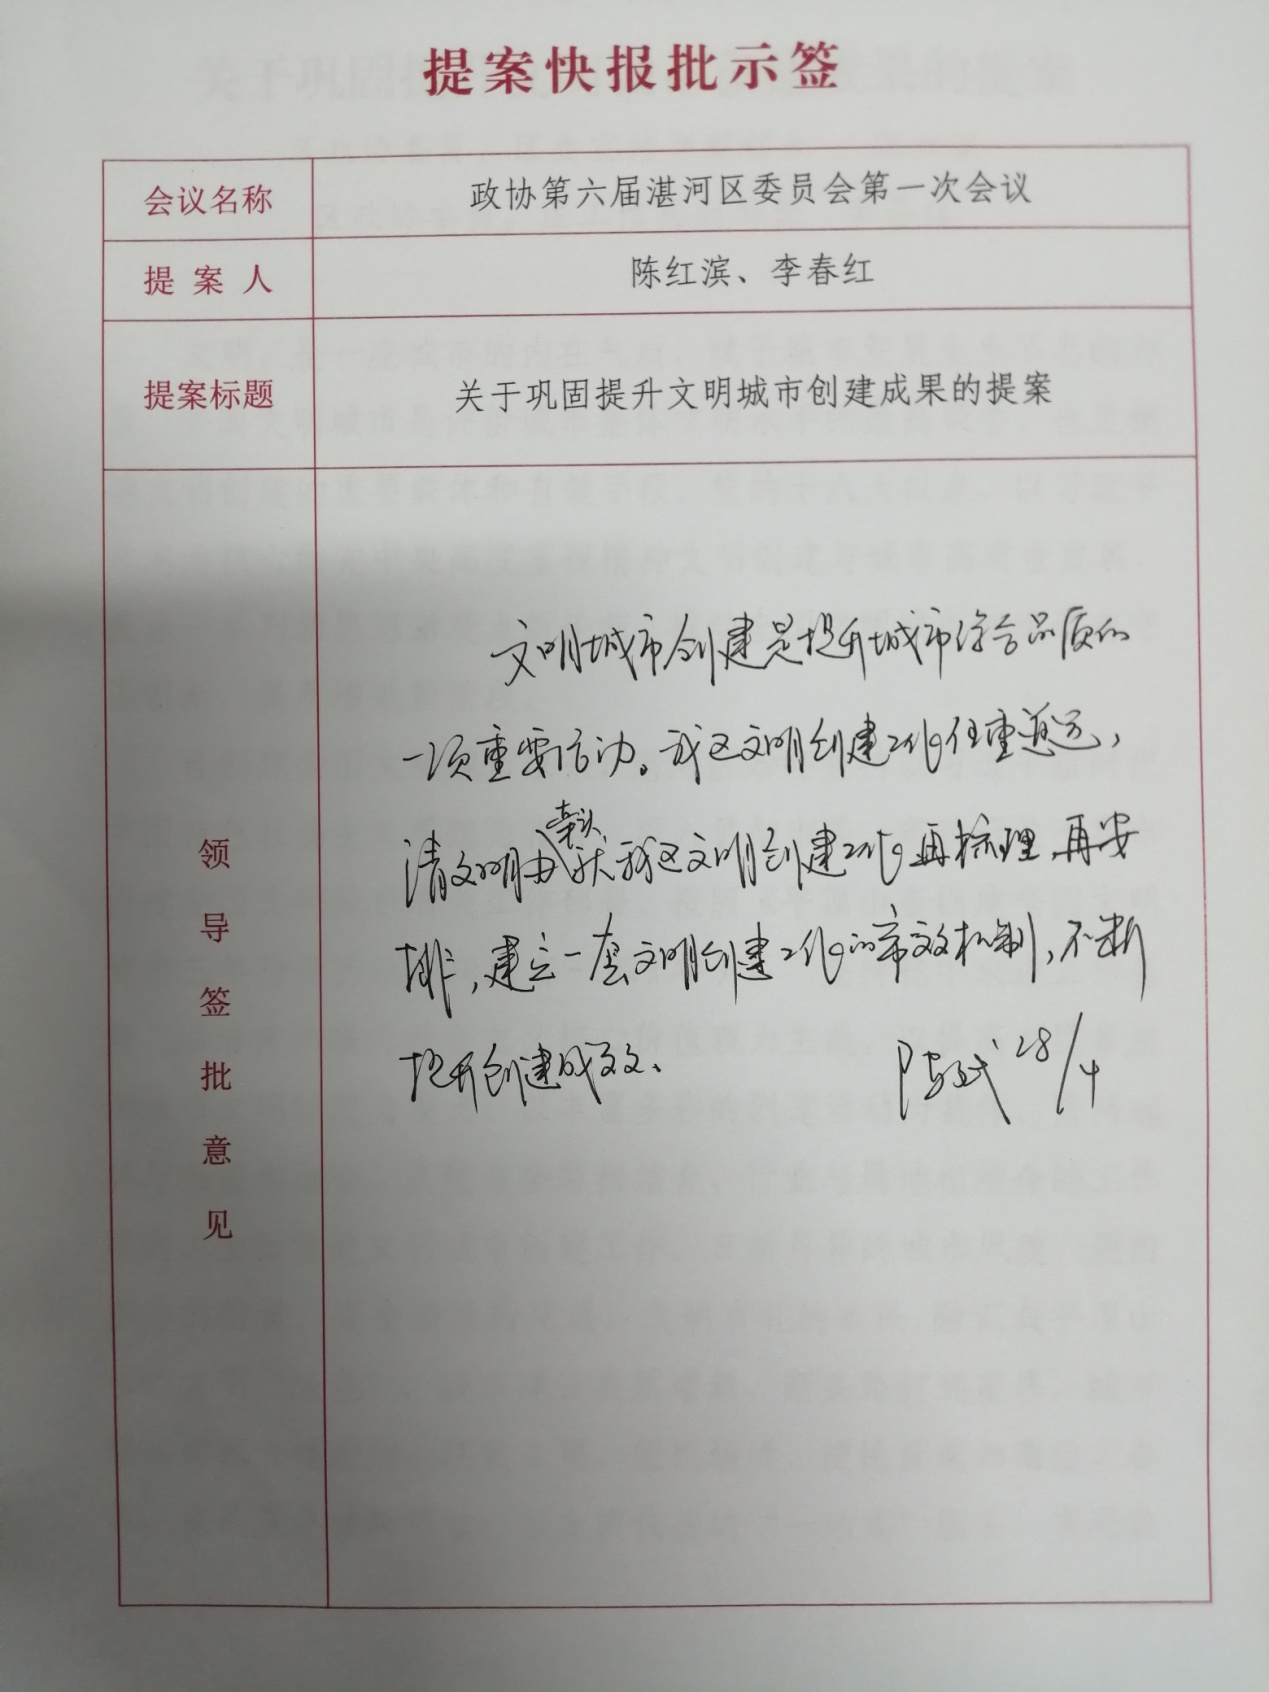 提案快报批示签
会议名称 政协第六届湛河区委员会第一次会议
提案人 陈红滨、李春红
提案标题 关于巩固提升文明城市创建成果的提案
领导签批意见
文明城市创建是提升城市综合品质的
一项重要活动。我区文明创建工作任重道远，
请文明办牵头对我区文明创建工作再梳理，再安
排，建立一套文明创建工作的常效机制，不断
提升创建成效、
28/4